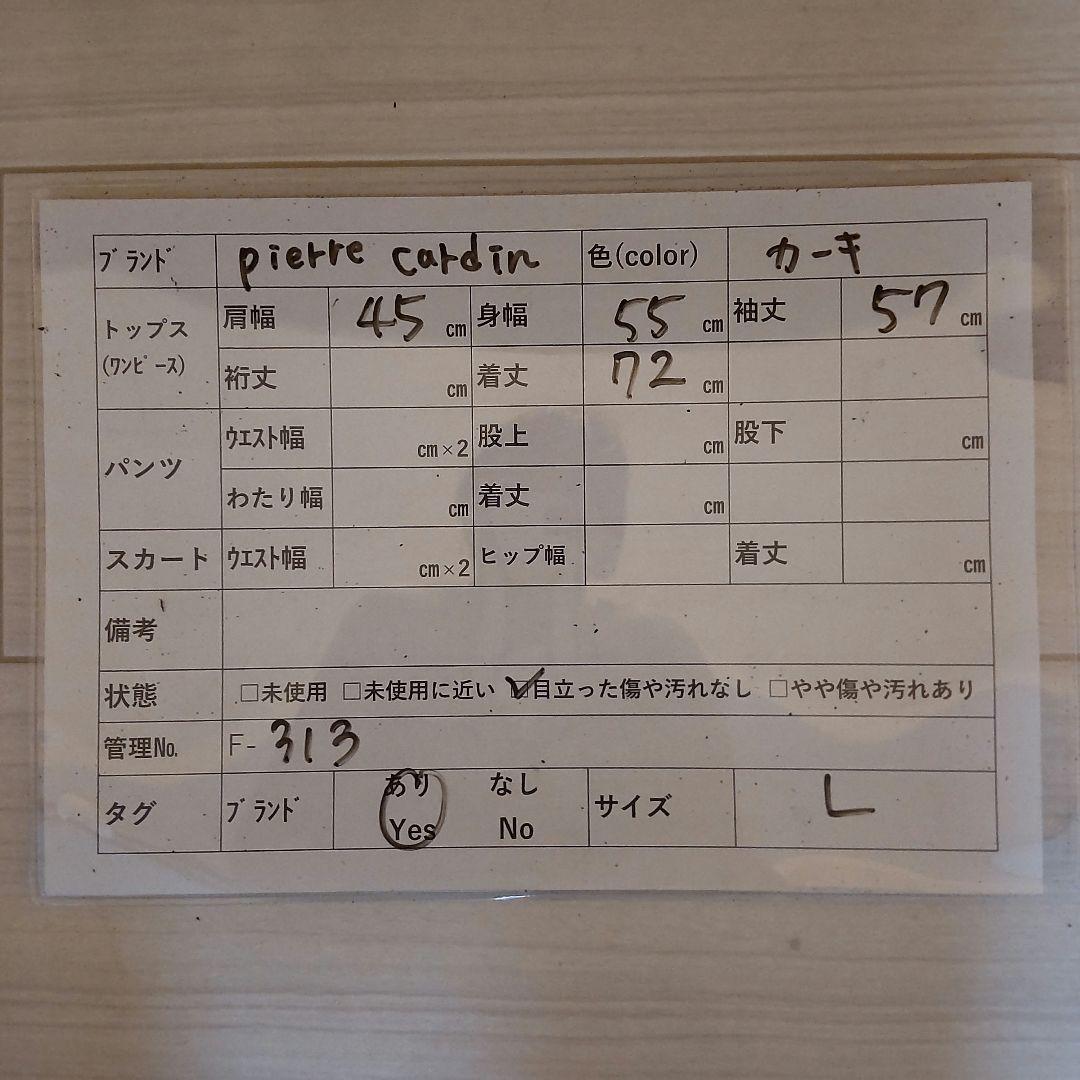 ブランド pierre cardin 色(color) カーキ
トップス(ワンピース) 肩幅 45 cm 身幅 55 cm 袖丈 57 cm
裄丈 cm 着丈 72 cm
パンツ ウエスト幅 cm×2 股上 cm 股下 cm
わたり幅 cm 着丈 cm
スカート ウエスト幅 cm×2 ヒップ幅 着丈 cm
備考
状態 □未使用 □未使用に近い ☑目立った傷や汚れなし □やや傷や汚れあり
管理No. F-313
タグ ブランド あり Yes なし No サイズ L